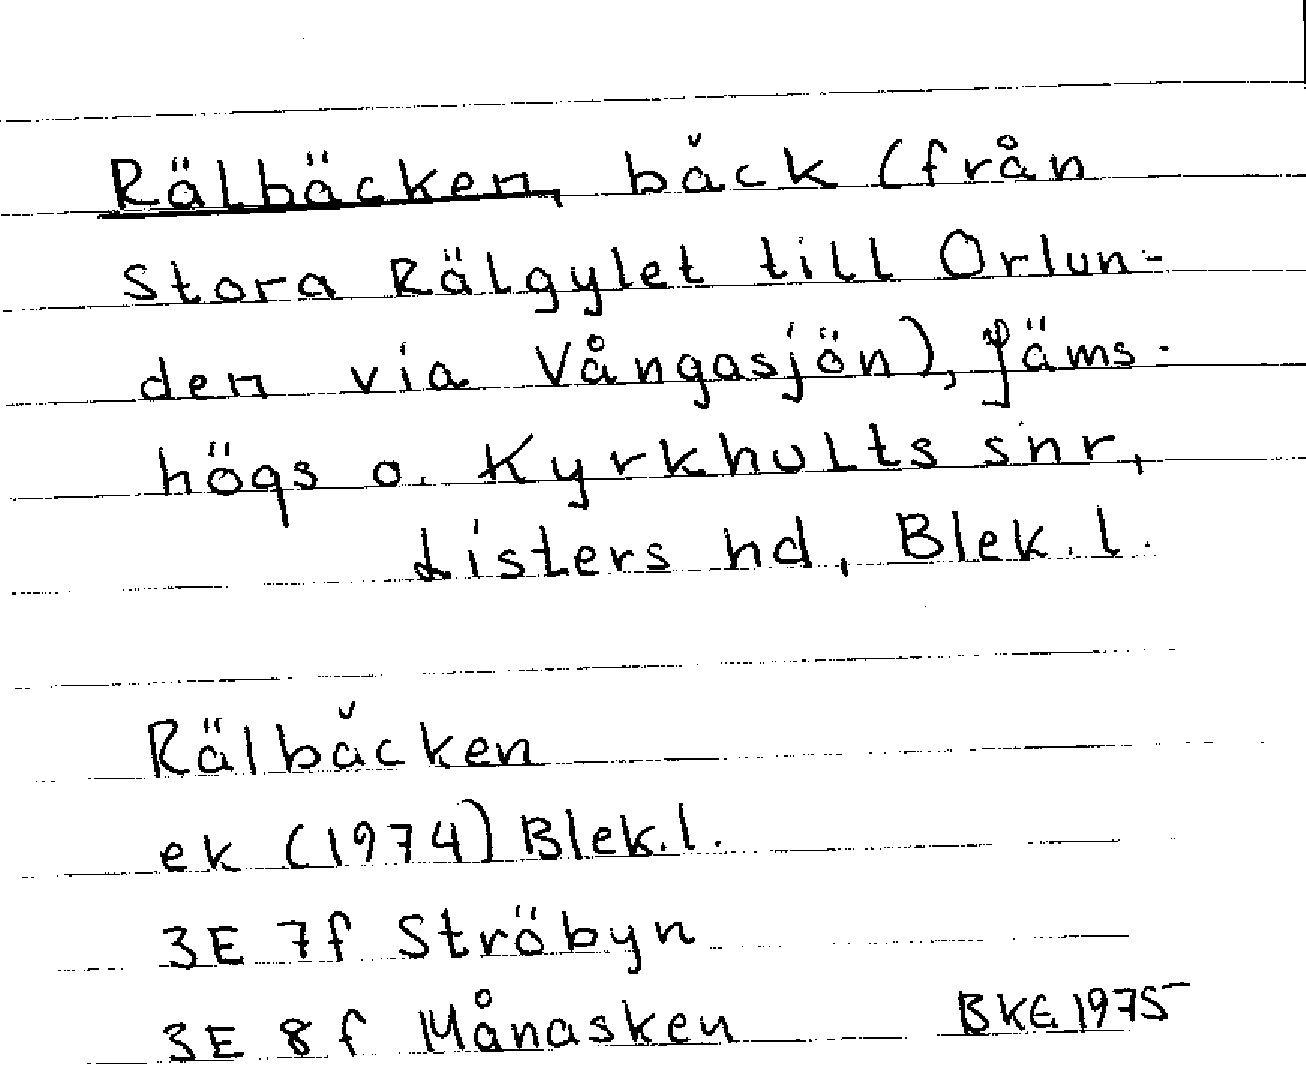 Rälbäcken, bäck (från
Stora Rälgylet till Orlun-
den via Vångasjön), Jäms-
högs o. Kyrkhults snr,
Listers hd, Blek. l.
Rälbäcken
ek (1974) Blek. l.
3E 7f Ströbyn
3E 8f Månasken
BKE 1975